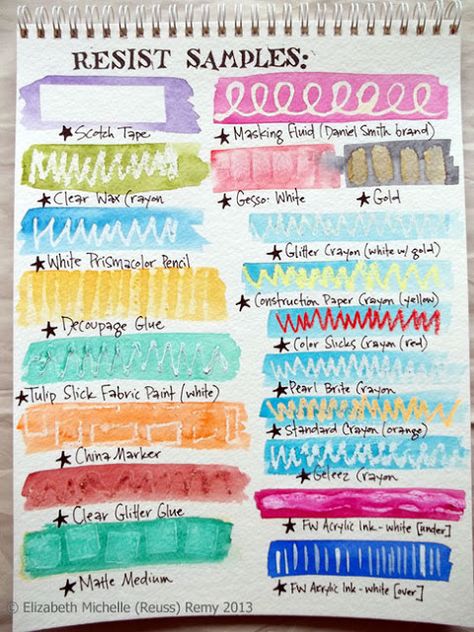 RESIST SAMPLES:
★ Scotch Tape
★ Clear Wax Crayon
★ White Prismacolor Pencil
★ Decoupage Glue
★ Tulip Slick Fabric Paint (white)
★ China Marker
★ Clear Glitter Glue
★ Matte Medium
★ Masking Fluid (Daniel Smith brand)
★ Gesso: White
★ Gold
★ Glitter Crayon (white w/ gold)
★ Construction Paper Crayon (yellow)
★ Color Slicks Crayon (red)
★ Pearl Brite Crayon
★ Standard Crayon (orange)
★ Geleez Crayon
★ FW Acrylic Ink - white [under]
★ FW Acrylic Ink - white [over]
© Elizabeth Michelle (Reuss) Remy 2013